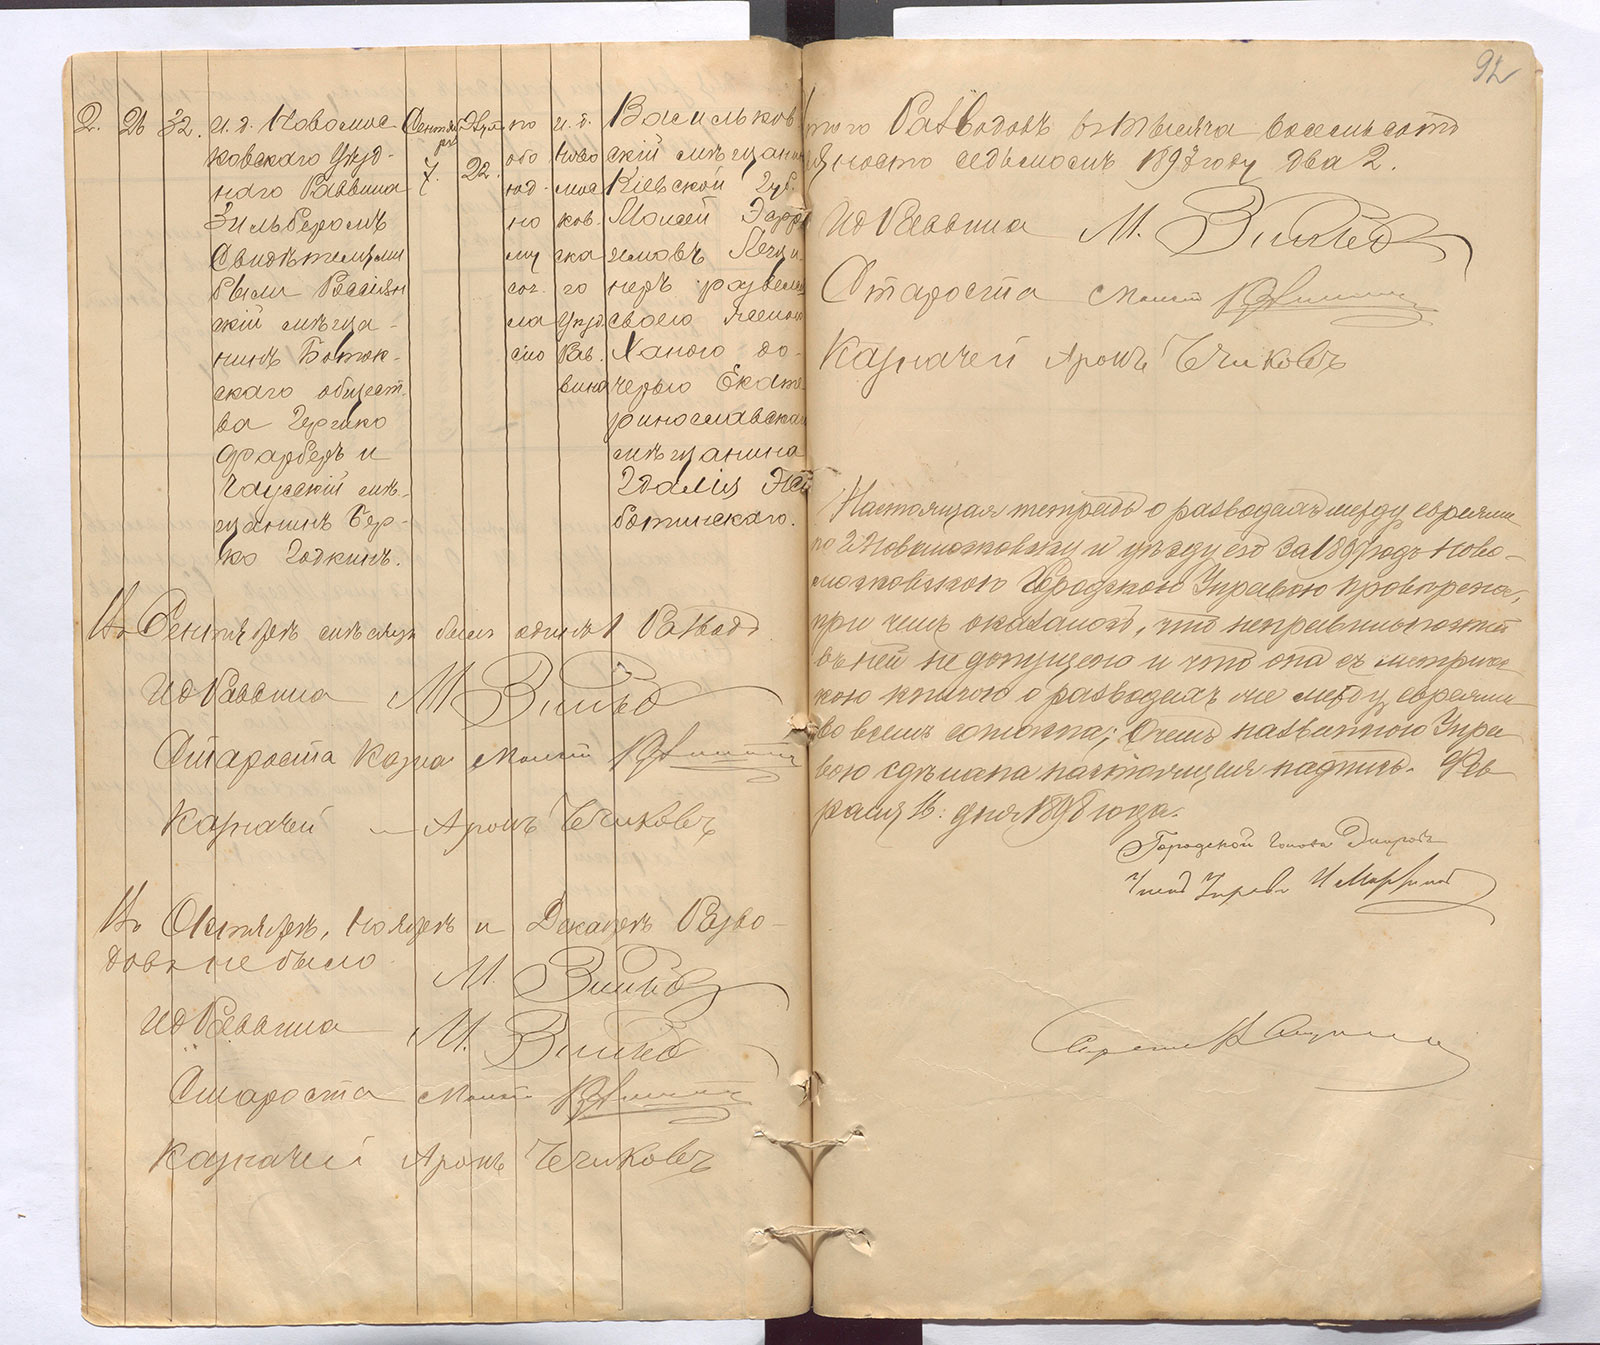 92
2. 26 32. И. д. Новомос
ковскаго Уѣзд-
наго Раввина
Зильберомъ
Свидѣтелями
были Россіен
скій мѣща-
нинъ Боток-
скаго общест
ва Гершко
Фарберъ и
Чаусскій мѣ-
щанинъ Бер-
ко Годкинъ.
Сентяб
ря
7.
22.
по
обо
юд-
но
му
сог-
ла
сію
и. д.
Ново
мос
ков-
ска
го
Уѣзд.
Рав.
вина
Васильков
скій мѣщанин
Кіевской Губ.
Моисей
развелся
своею женою
Ханою до-
черью Екате
ринославскаго
мѣщанина
Гдалія
ботинскаго.
Въ Сентябрѣ мѣсяцѣ былъ одинъ 1 Разводъ
И д Раввина М. Зильб
Староста Казна Моисей
Казначей — Аронъ Ччиковъ
Въ Октябрѣ, Ноябрѣ и Декабрѣ Разво-
довъ не было
М. Зильб
И д Раввина М. Зильб
Староста Моисей
Казначей Аронъ Ччиковъ
того Разводовъ въ тысяча восемьсотъ
девяносто седьмомъ 1897 году два 2.
И д Раввина М. Зильб
Староста Моисей
Казначей Аронъ Ччиковъ
Настоящая тетрадь о разводахъ между евреями
по г. Новомосковску и уѣзду его за 1897 годъ Ново-
московскою Городскою Управою провѣрена,
при чемъ оказалось, что неправильностей
въ ней не допущено и что она съ метричес
кою книгою о разводахъ же между евреями
во всемъ согласна; о чемъ названною Упра
вою сдѣлана настоящая надпись. Фев
раля 16 дня 1898 года.
Городской Голова
Членъ Управы